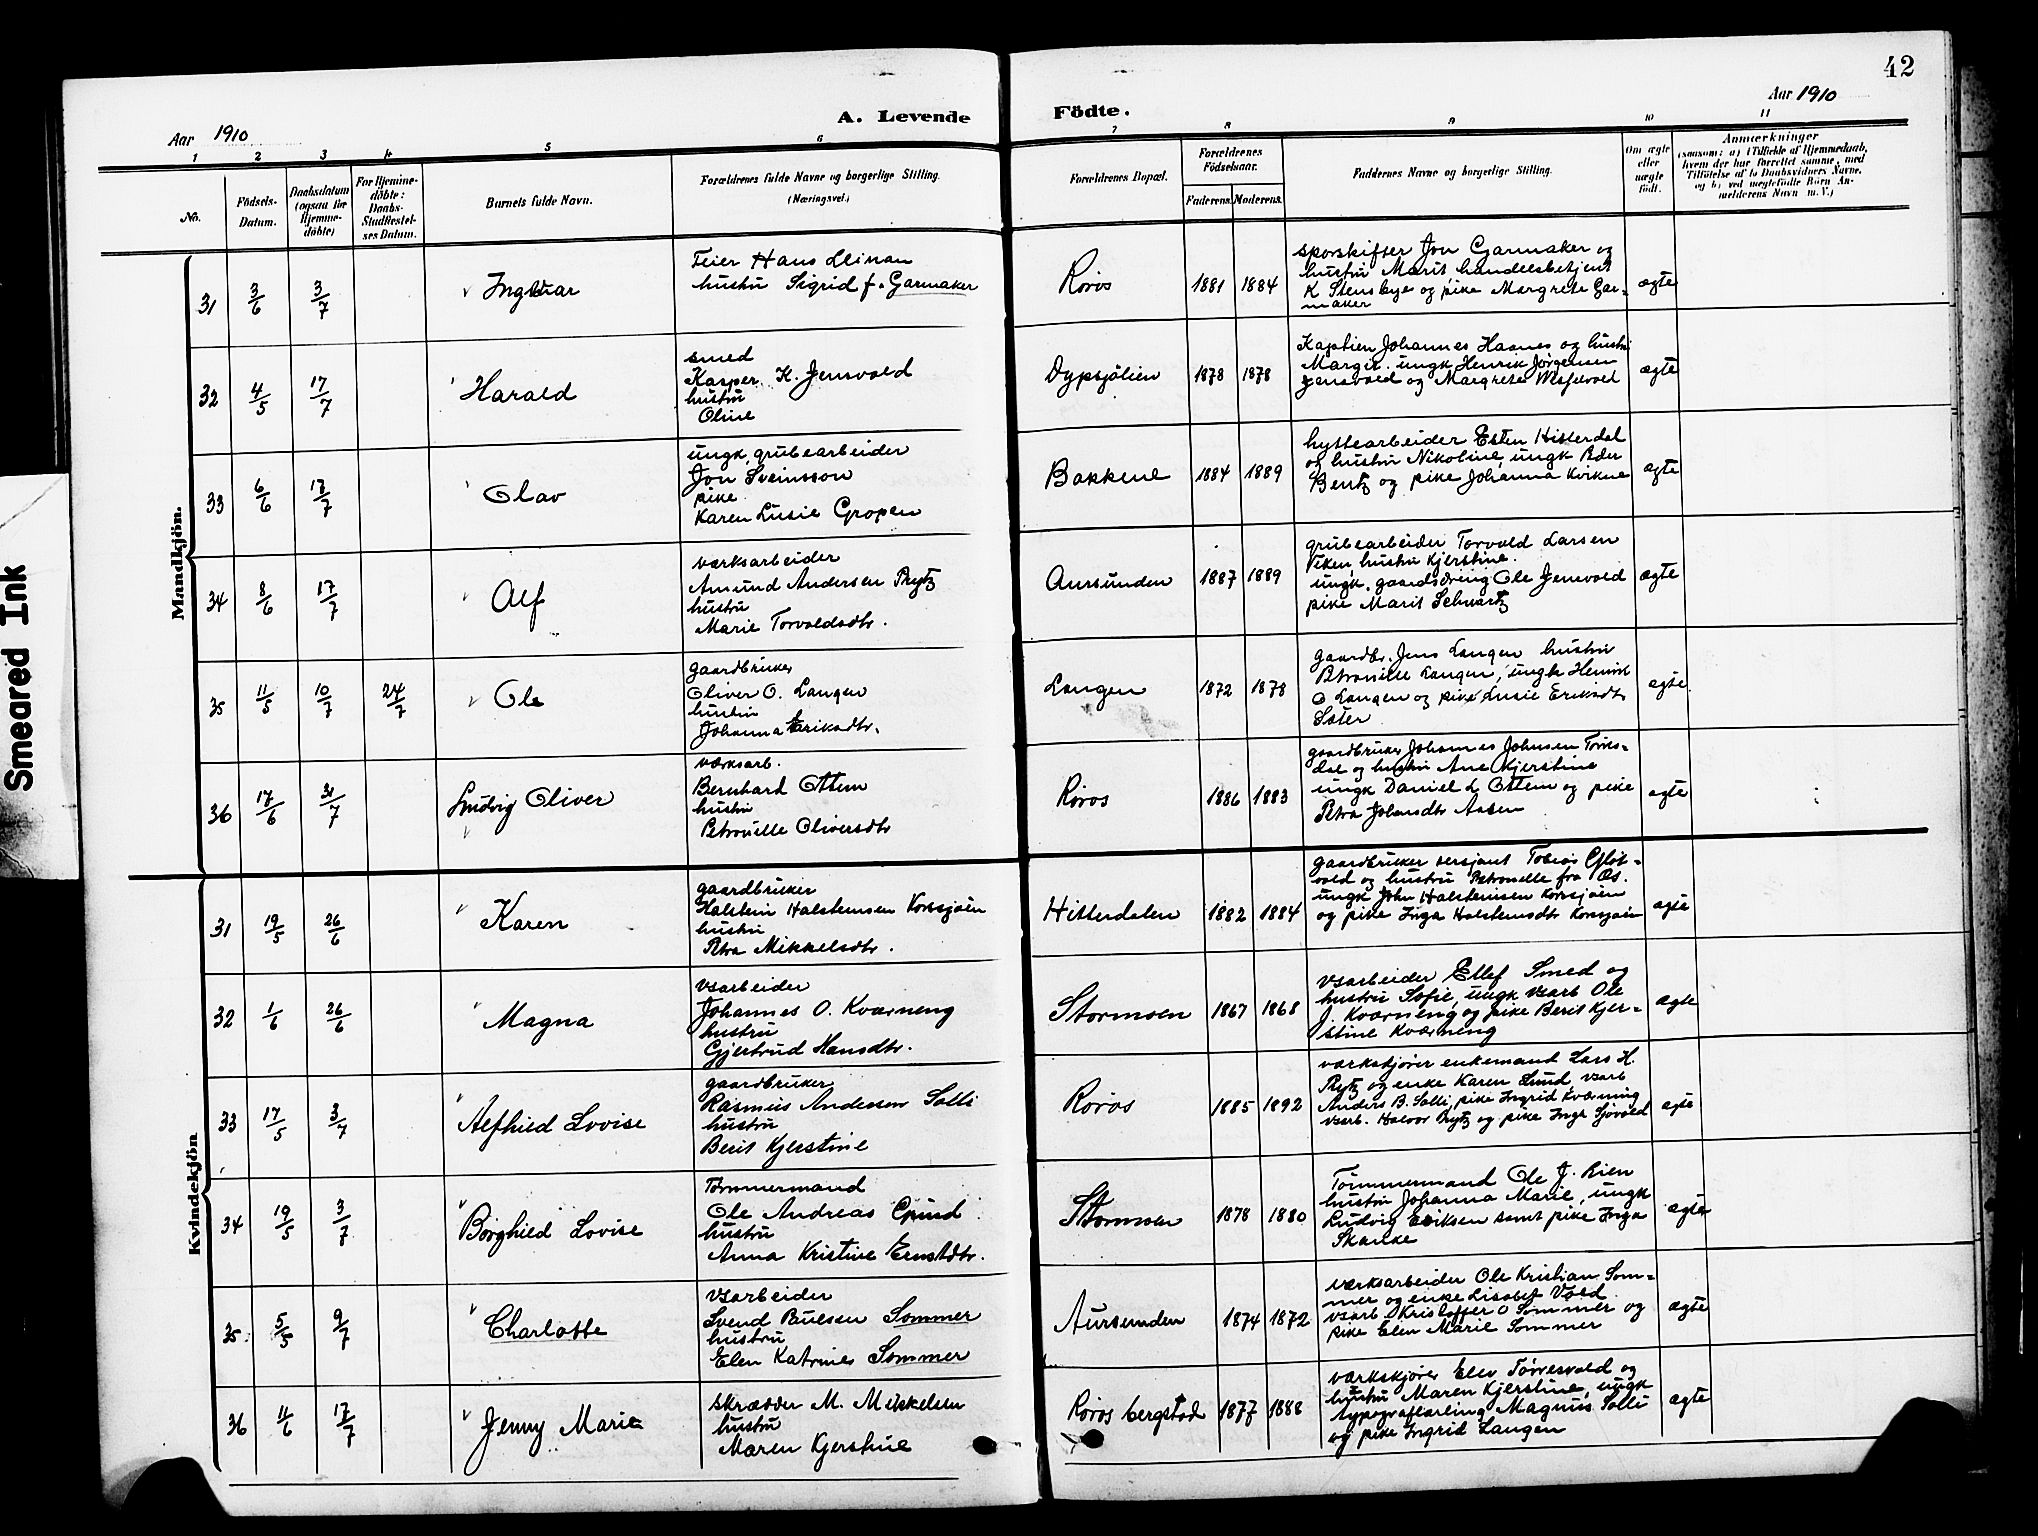 42
Aar 1910
A. Levende Födte.
Aar 1910
1 2 3 4 5 6 7 8 9 10 11
No.
Födsels-Datum.
Daabsdatum (ogsaa for Hjemme-døbte)
For Hjemme-döbte: Daabs-Stadfestel-ses Datum.
Barnets fulde Navn.
Forældrenes fulde Navne og borgerlige Stilling.
(Næringsvei.)
Forældrenes Bopæl.
Forældrenes Födselsaar.
Faderens. Moderens.
Faddernes Navne og borgerlige Stilling.
Om ægte eller uægte födt.
Anmærkninger
(saasom: a) i Tilfælde af Hjemmedaab,
hvem der har forrettet samme, med
Tilföielse af to Daabsvidners Navne,
og b) ved uegtefödte Börn An-
melderens Navn m. V.)
Mandkjön.
31 3/6 3/7 Ingvar
Feier Hans Leinan
hustru Sigrid f. Garmaker
Røros 1881 1884
sporskifter Jon Garmaker og
hustru Marit handelsbetjent
K Stensbye og pike Margrete Gar=
maker
ægte
32 4/5 17/7 Harald
smed
Kasper K. Jensvold
hustru
Oline
Dypsjølien 1878 1878
Kaptien Johannes Haanes og hustru
Margit, ungk Henrik Jørgensen
Jensvold og Margrete
ægte
33 6/6 17/7 Olav
ungk. grubearbeider
Jon Sveinsson
pike
Karen Lusie Gropen
Bakkene 1884 1889
hyttearbeider Esten Hitterdal
og hustru Nikoline, ungk Peder
Bentz og pike Johanna Kvikne
ægte
34 8/6 17/7 Alf
værksarbeider
Amund Andersen Prytz
hustru
Marie Torvaldsdtr.
Aursunden 1887 1889
grubearbeider Torvald Larsen
Viken, hustru Kjerstine.
ungk. gaardsdreng Ole Jensvold
pike Marit Schwartz
ægte
35 11/5 10/7 24/7 Ole
gaardbruker
Oliver O. Langen
hustru
Johanna Eriksdtr.
Langen 1872 1878
gaardbr. Jens Langen hustru
Petronille Langen, ungk Henrik
O Langen og pike Lusie Eriksdtr
Sæter
ægte.
36 17/6 31/7 Ludvig Oliver
værksarb.
Bernhard Ottem
hustru
Petronille Oliversdtr
Røros 1886 1883
gaardbruker Johannes Johnsen Tørres=
dal og hustru Ane Kjerstine
ungk Daniel L Ottem og pike
Petra Johansdtr Aasen
ægte
Kvindekjön
31 19/5 26/6 Karen
gaardbruker
Halstein Halsteinsen Korssjøen
hustru
Petra Mikkelsdtr.
Hitterdalen 1882 1884
gaardbruker sersjant Tobias Galåt=
vold og hustru Petronelle fra Øs.
ungk John Halsteinsen Korssjøen
og pike Inga Halsteinsdtr Korssjøen
ægte
32 1/6 26/6 Magna
vsarbeider
Johannes O. Kværneng
hustru
Gjertrud Hansdtr.
Stormoen 1867 1868
vsarbeider Ellef Smed og
hustru Sofie, ungk vsarb Ole
J. Kværneng og pike Berit Kjer=
stine Kværneng
ægte
33 17/5 3/7 Alfhild Lovise
gaardbruker
Rasmus Andersen Solli
hustru
Berit Kjerstine
Røros 1885 1892
værkskjører enkemand Lars H.
Prytz og enke Karen Lund, vsarb
Anders B. Solli, pike Ingrid Kværneng
vsarb. Halvor Prytz og pike Inga Sjøvold
ægte
34 19/5 3/7 Borghild Lovise
Tømmermand
Ole Andreas Grind
hustru
Anna Kristine Ernstdtr.
Stormoen 1878 1880
Tømmermand Ole J. Rien
hustru Johanna Marie, ungk
Ludvig Eriksen samt pike Inga
Skanke
ægte
35 5/5 9/7 Charlotte
vsarbeider
Svend Paulsen Sommer
hustru
Elen Katrine Sommer
Aursunden 1874 1872
værksarbeider Ole Kristian Som=
mer og enke Lisabet Vold
vsarb Kristoffer O Sommer og
pike Elen Marie Sommer
ægte
36 4/6 17/7 Jenny Marie
skrædder M. Mikkelsen
hustru
Maren Kjerstine
Røros bergstad 1877 1888
værkskjører Elev Tørresvold og
hustru Maren Kjerstine, ungk
typograflærling Magnus Solli
og pike Ingrid Langen
ægte
Smeared Ink